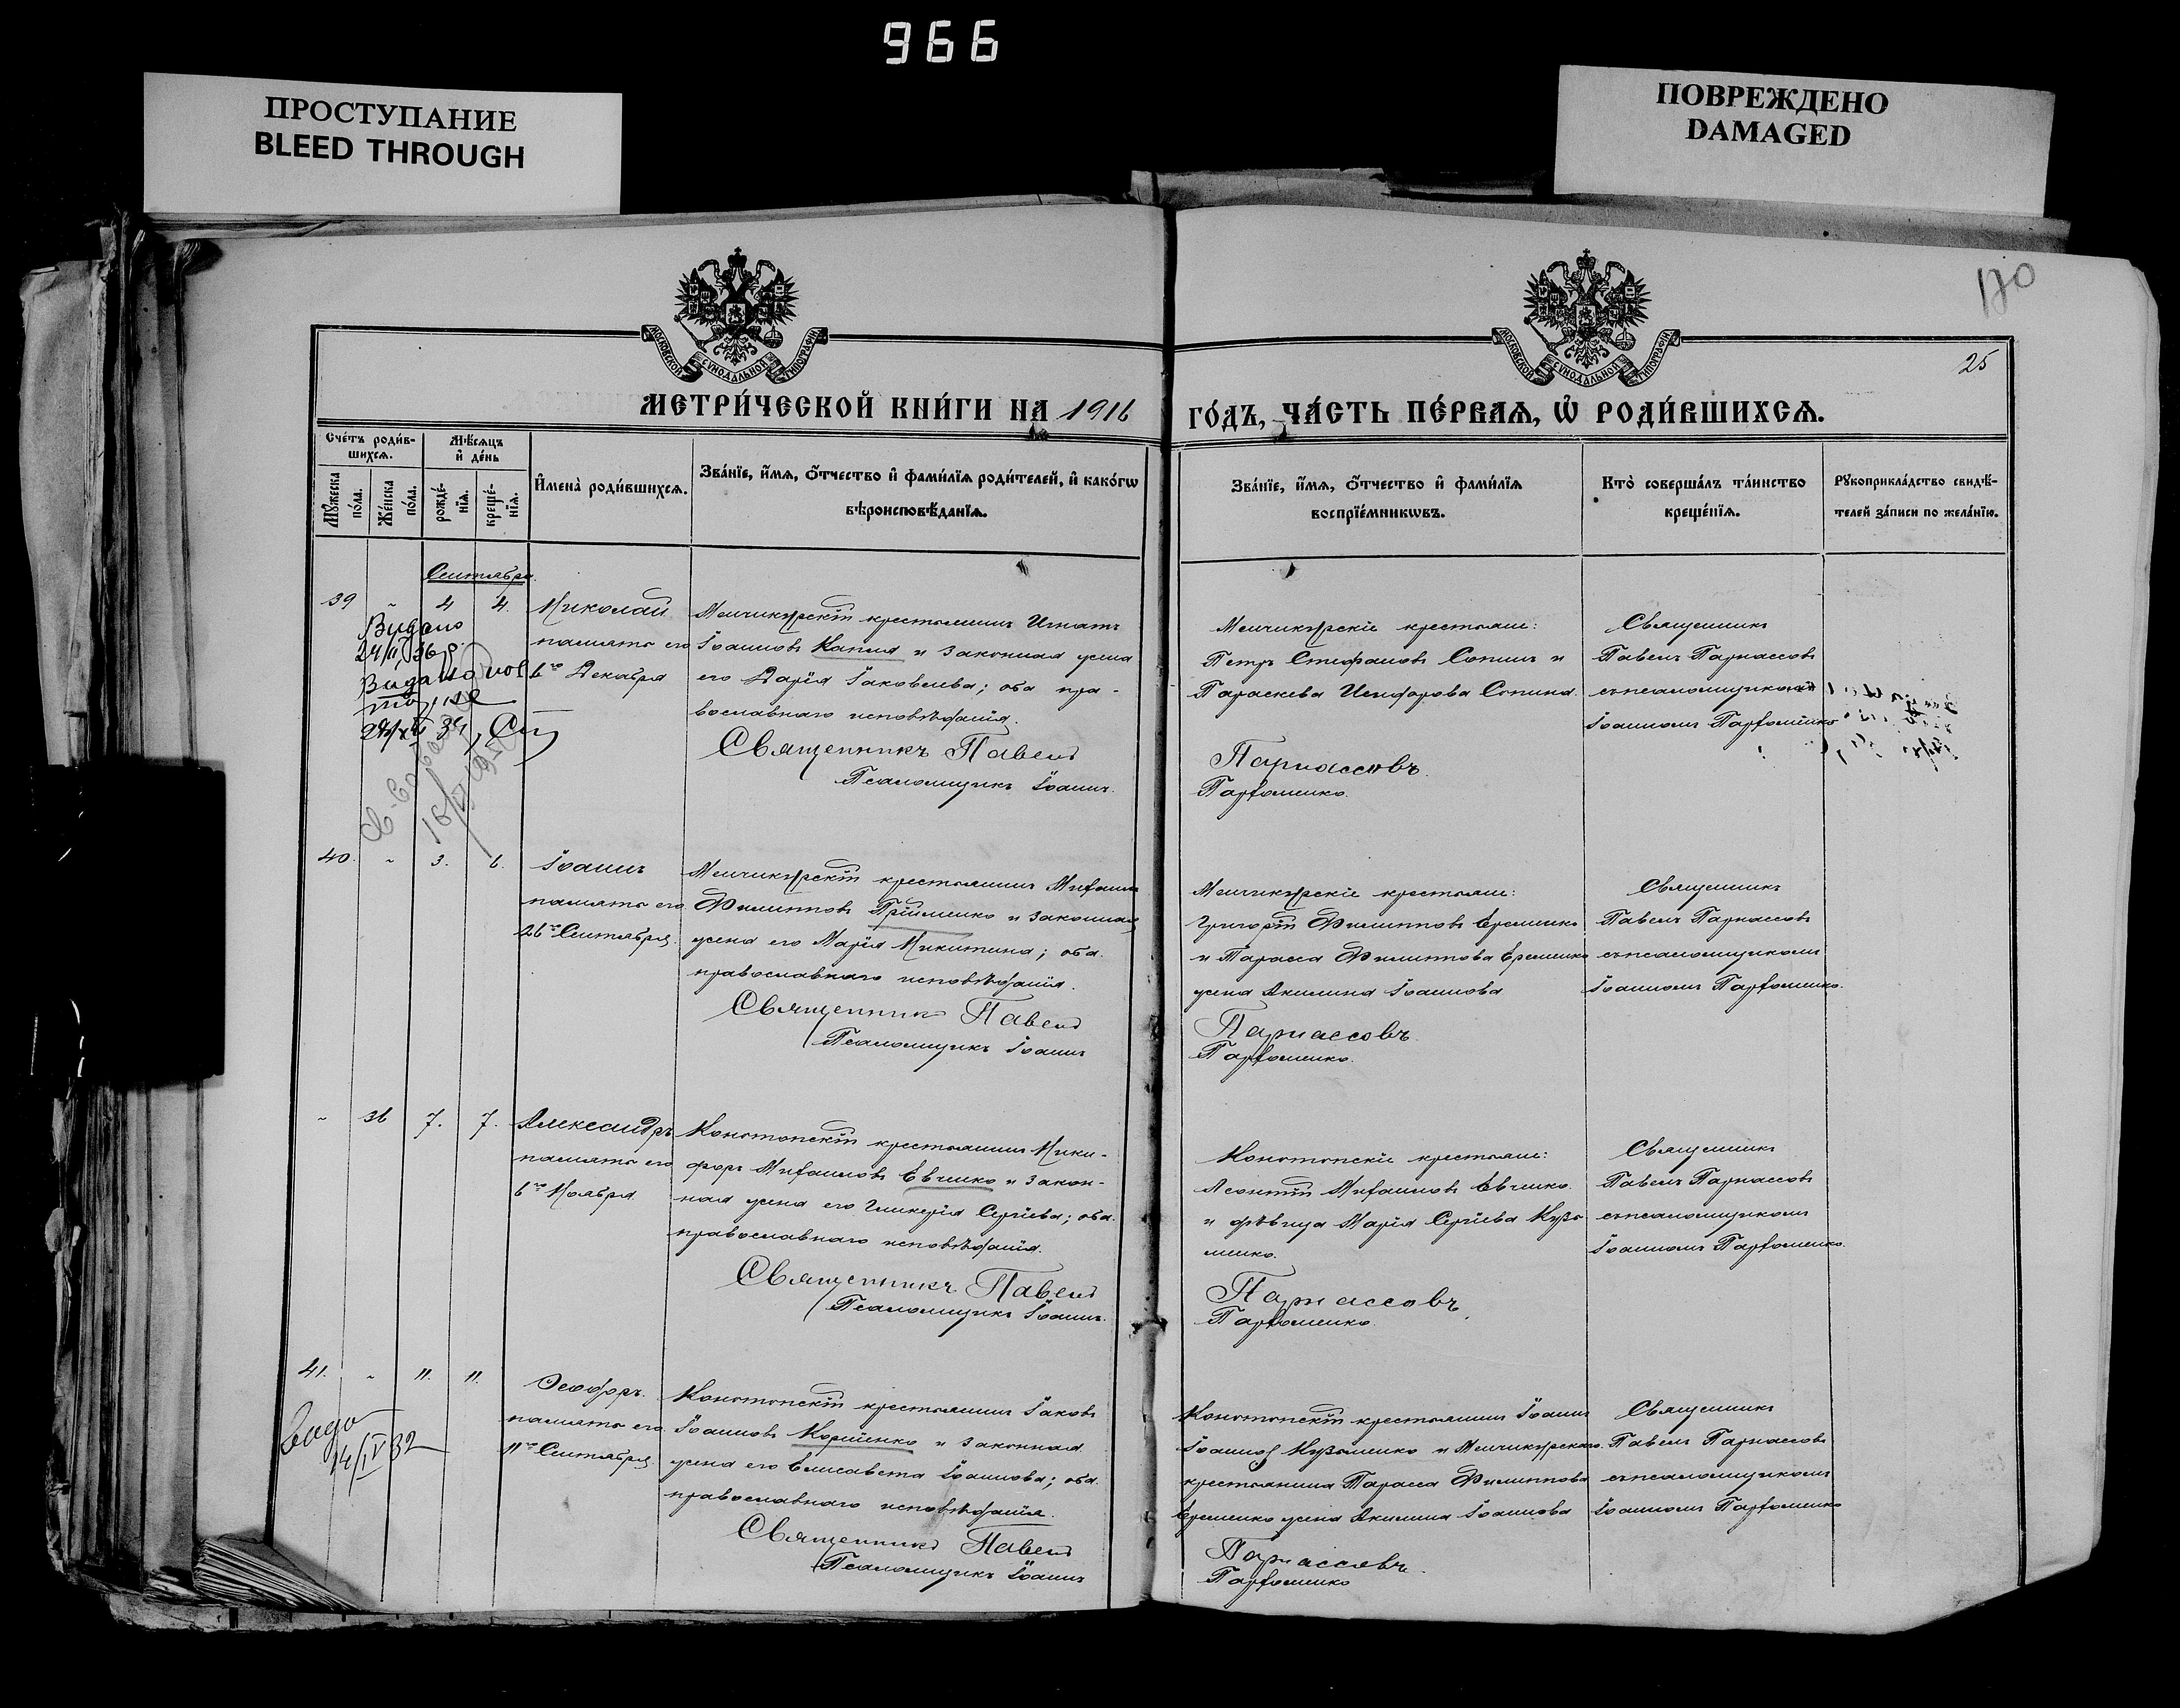 966
ПРОСТУПАНИЕ
BLEED THROUGH
ПОВРЕЖДЕНО
DAMAGED
170
25
МОСКОВСКОЙ СѴНОДАЛЬНОЙ ТИПОГРАФІИ
МОСКОВСКОЙ СѴНОДАЛЬНОЙ ТИПОГРАФІИ
МЕТРИ́ЧЕСКОЙ КНИ́ГИ НА 1916
ГО́ДЪ, ЧА́СТЬ ПЕ́РВАѦ, Ѽ РОДИ́ВШИХСѦ.
Сче́тъ роди́в-
шихсѧ.
Мѣ́сѧцъ
и҆ де́нь
Мꙋ́жеска
по́ла.
Же́нска
по́ла.
рожде́-
нїѧ.
креще́-
нїѧ.
И҆мена̀ роди́вшихсѧ.
Зва́нїе, и҆́мѧ, ѻ҆́тчество и҆ фами́лїѧ роди́телей, и҆ како́гѡ
вѣроисповѣ́данїѧ.
Зва́нїе, и҆́мѧ, ѻ҆́тчество и҆ фами́лїѧ
воспрїе́мникѡвъ.
Кто̀ соверша́лъ та́инство
креще́нїѧ.
Рꙋкоприкла́дство свидѣ́-
телей за́писи по жела́нїю.
Сентябрь.
39 " 4 4. Николай
память его
6го Декабря
Менчикурскій крестьянинъ Игнатъ
Іоанновъ Капля и законная жена
его Дарія Іаковлева; оба пра-
вославнаго исповѣданія.
Священникъ Павелъ
Псаломщикъ Іоаннъ
Видано
24/II 36 р.
Менчикурскіе крестьяне:
Петръ Стефановъ Сопинъ и
Параскева Сопина.
Парнассовъ.
Парфоменко.
Священникъ
Павелъ Парнассовъ
съ псаломщикомъ
Іоанномъ Парфоменко
40. " 3. 6. Іоаннъ
память его
26го Сентября.
Менчикурскій крестьянинъ Михаилъ
Филипповъ Пріименко и законная
жена его Марія Никитина; оба
православнаго исповѣданія.
Священникъ Павелъ
Псаломщикъ Іоаннъ
Менчикурскіе крестьяне:
Григорій Филипповъ Еременко
и Тарасса Филиппова Еременко
жена Акилина Іоаннова
Парнассовъ.
Парфоменко.
Священникъ
Павелъ Парнассовъ
съ псаломщикомъ
Іоанномъ Парфоменко.
" 36 7. 7. Александръ
память его
6го Ноября
Конотопскій крестьянинъ Ники-
форъ Михаиловъ Евченко и закон-
ная жена его Гликерія Сергіева; оба
православнаго исповѣданія.
Священникъ Павелъ
Псаломщикъ Іоаннъ.
Конотопскіе крестьяне:
Леонтій Михаиловъ Евченко
и дѣвица Марія Сергіева Кузь-
менко.
Парнассовъ.
Парфоменко.
Священникъ
Павелъ Парнассовъ
съ псаломщикомъ
Іоанномъ Парфоменко.
41. " 11. 11. Ѳеодоръ.
память его
11го Сентября
Конотопскій крестьянинъ Іаковъ
Іоанновъ Корніенко и законная
жена его Елисавета Іоаннова; оба
православнаго исповѣданія.
Священникъ Павелъ
Псаломщикъ Іоаннъ
14/IV 32
Конотопскій крестьянинъ Іоаннъ
Іоанновъ Кузьменко и Менчикурскаго
крестьянина Тарасса Филиппова
Еременко жена Акилина Іоаннова
Парнассовъ.
Парфоменко
Священникъ
Павелъ Парнассовъ
съ псаломщикомъ
Іоанномъ Парфоменко